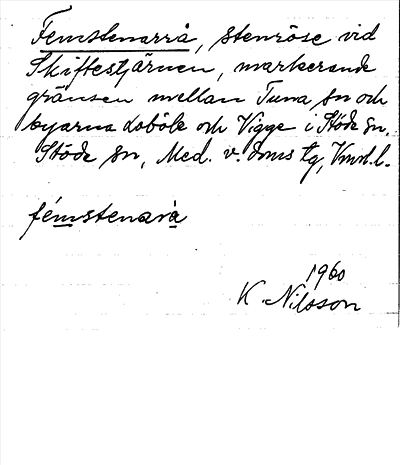 Femstenarrå, stenröse vid
Skiftestjärnen, markerande
gränsen mellan Tuna sn och
byarna Loböle och Vigge i Stöde sn.
Stöde sn, Med. v. doms tg, Vnrl.l.
fémstenarà
1960
K. Nilsson